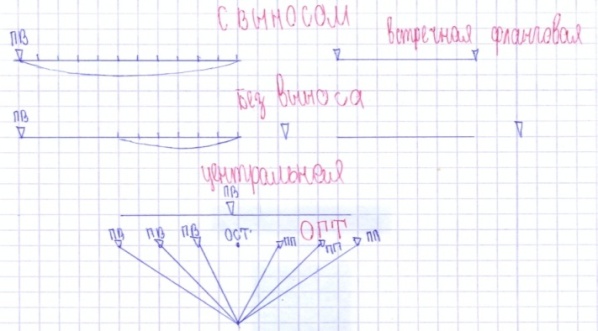 С выносом
ПВ
встречная фланговая
Без выноса
ПВ
центральная
ПВ
ПВ ПВ ПВ ОСТ. ПП ОПТ ПП ПП